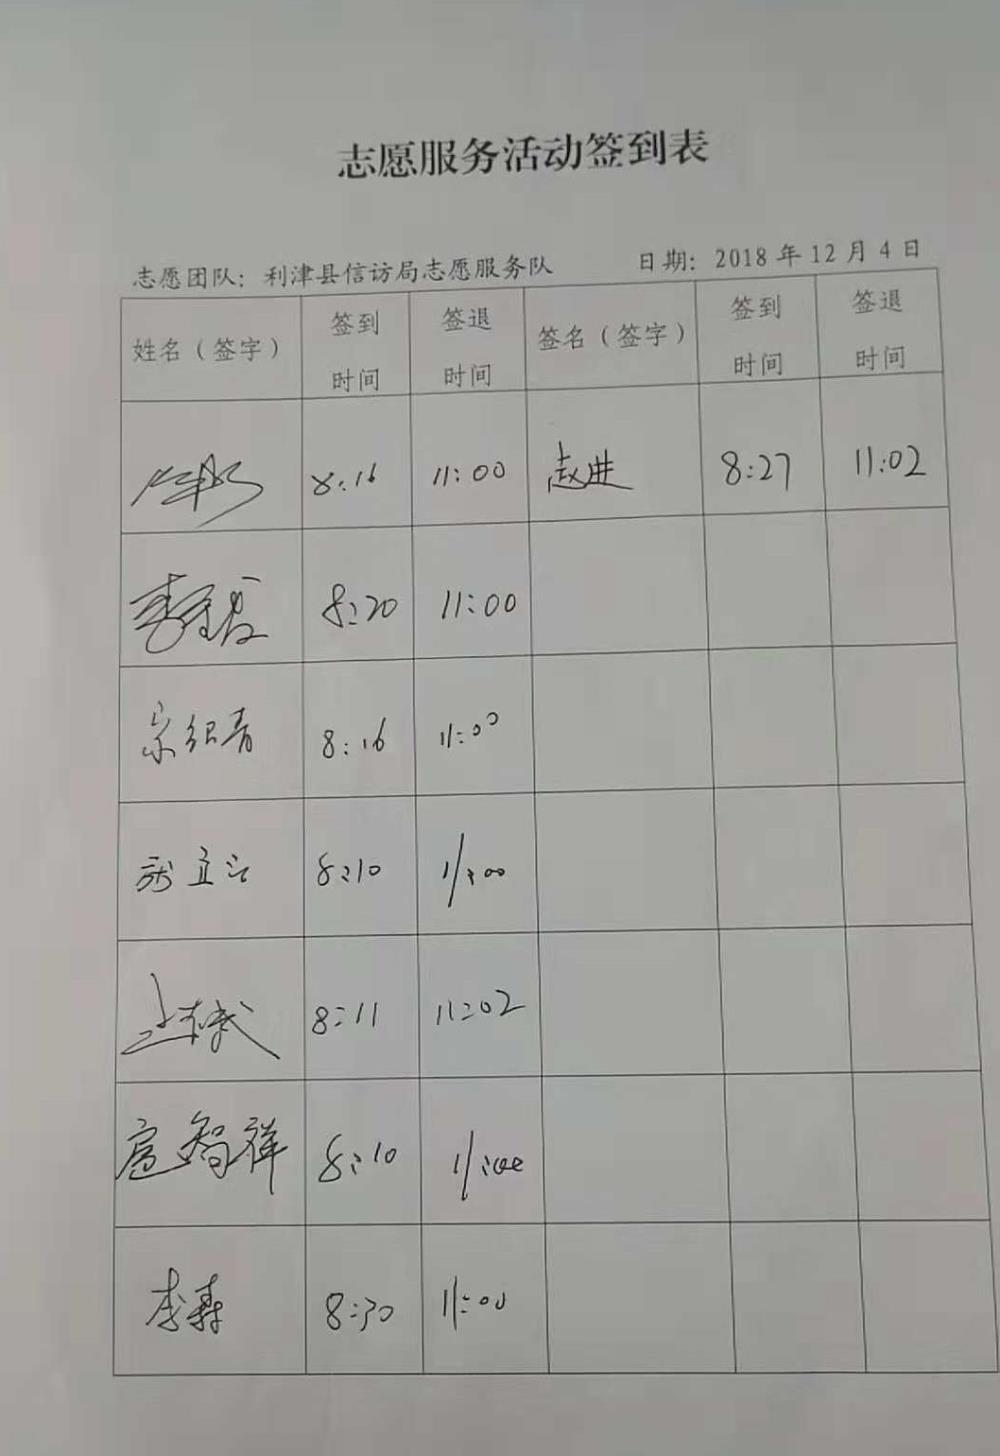 志愿服务活动签到表
志愿团队：利津县信访局志愿服务队 日期：2018 年 12 月 4 日
姓名（签字） 签到时间 签退时间 签名（签字） 签到时间 签退时间
8:16 11:00 赵进 8:27 11:02
8:20 11:00
8:16 11:00
8:10 11:00
8:11 11:02
智祥 8:10 11:00
李寿 8:30 11:00